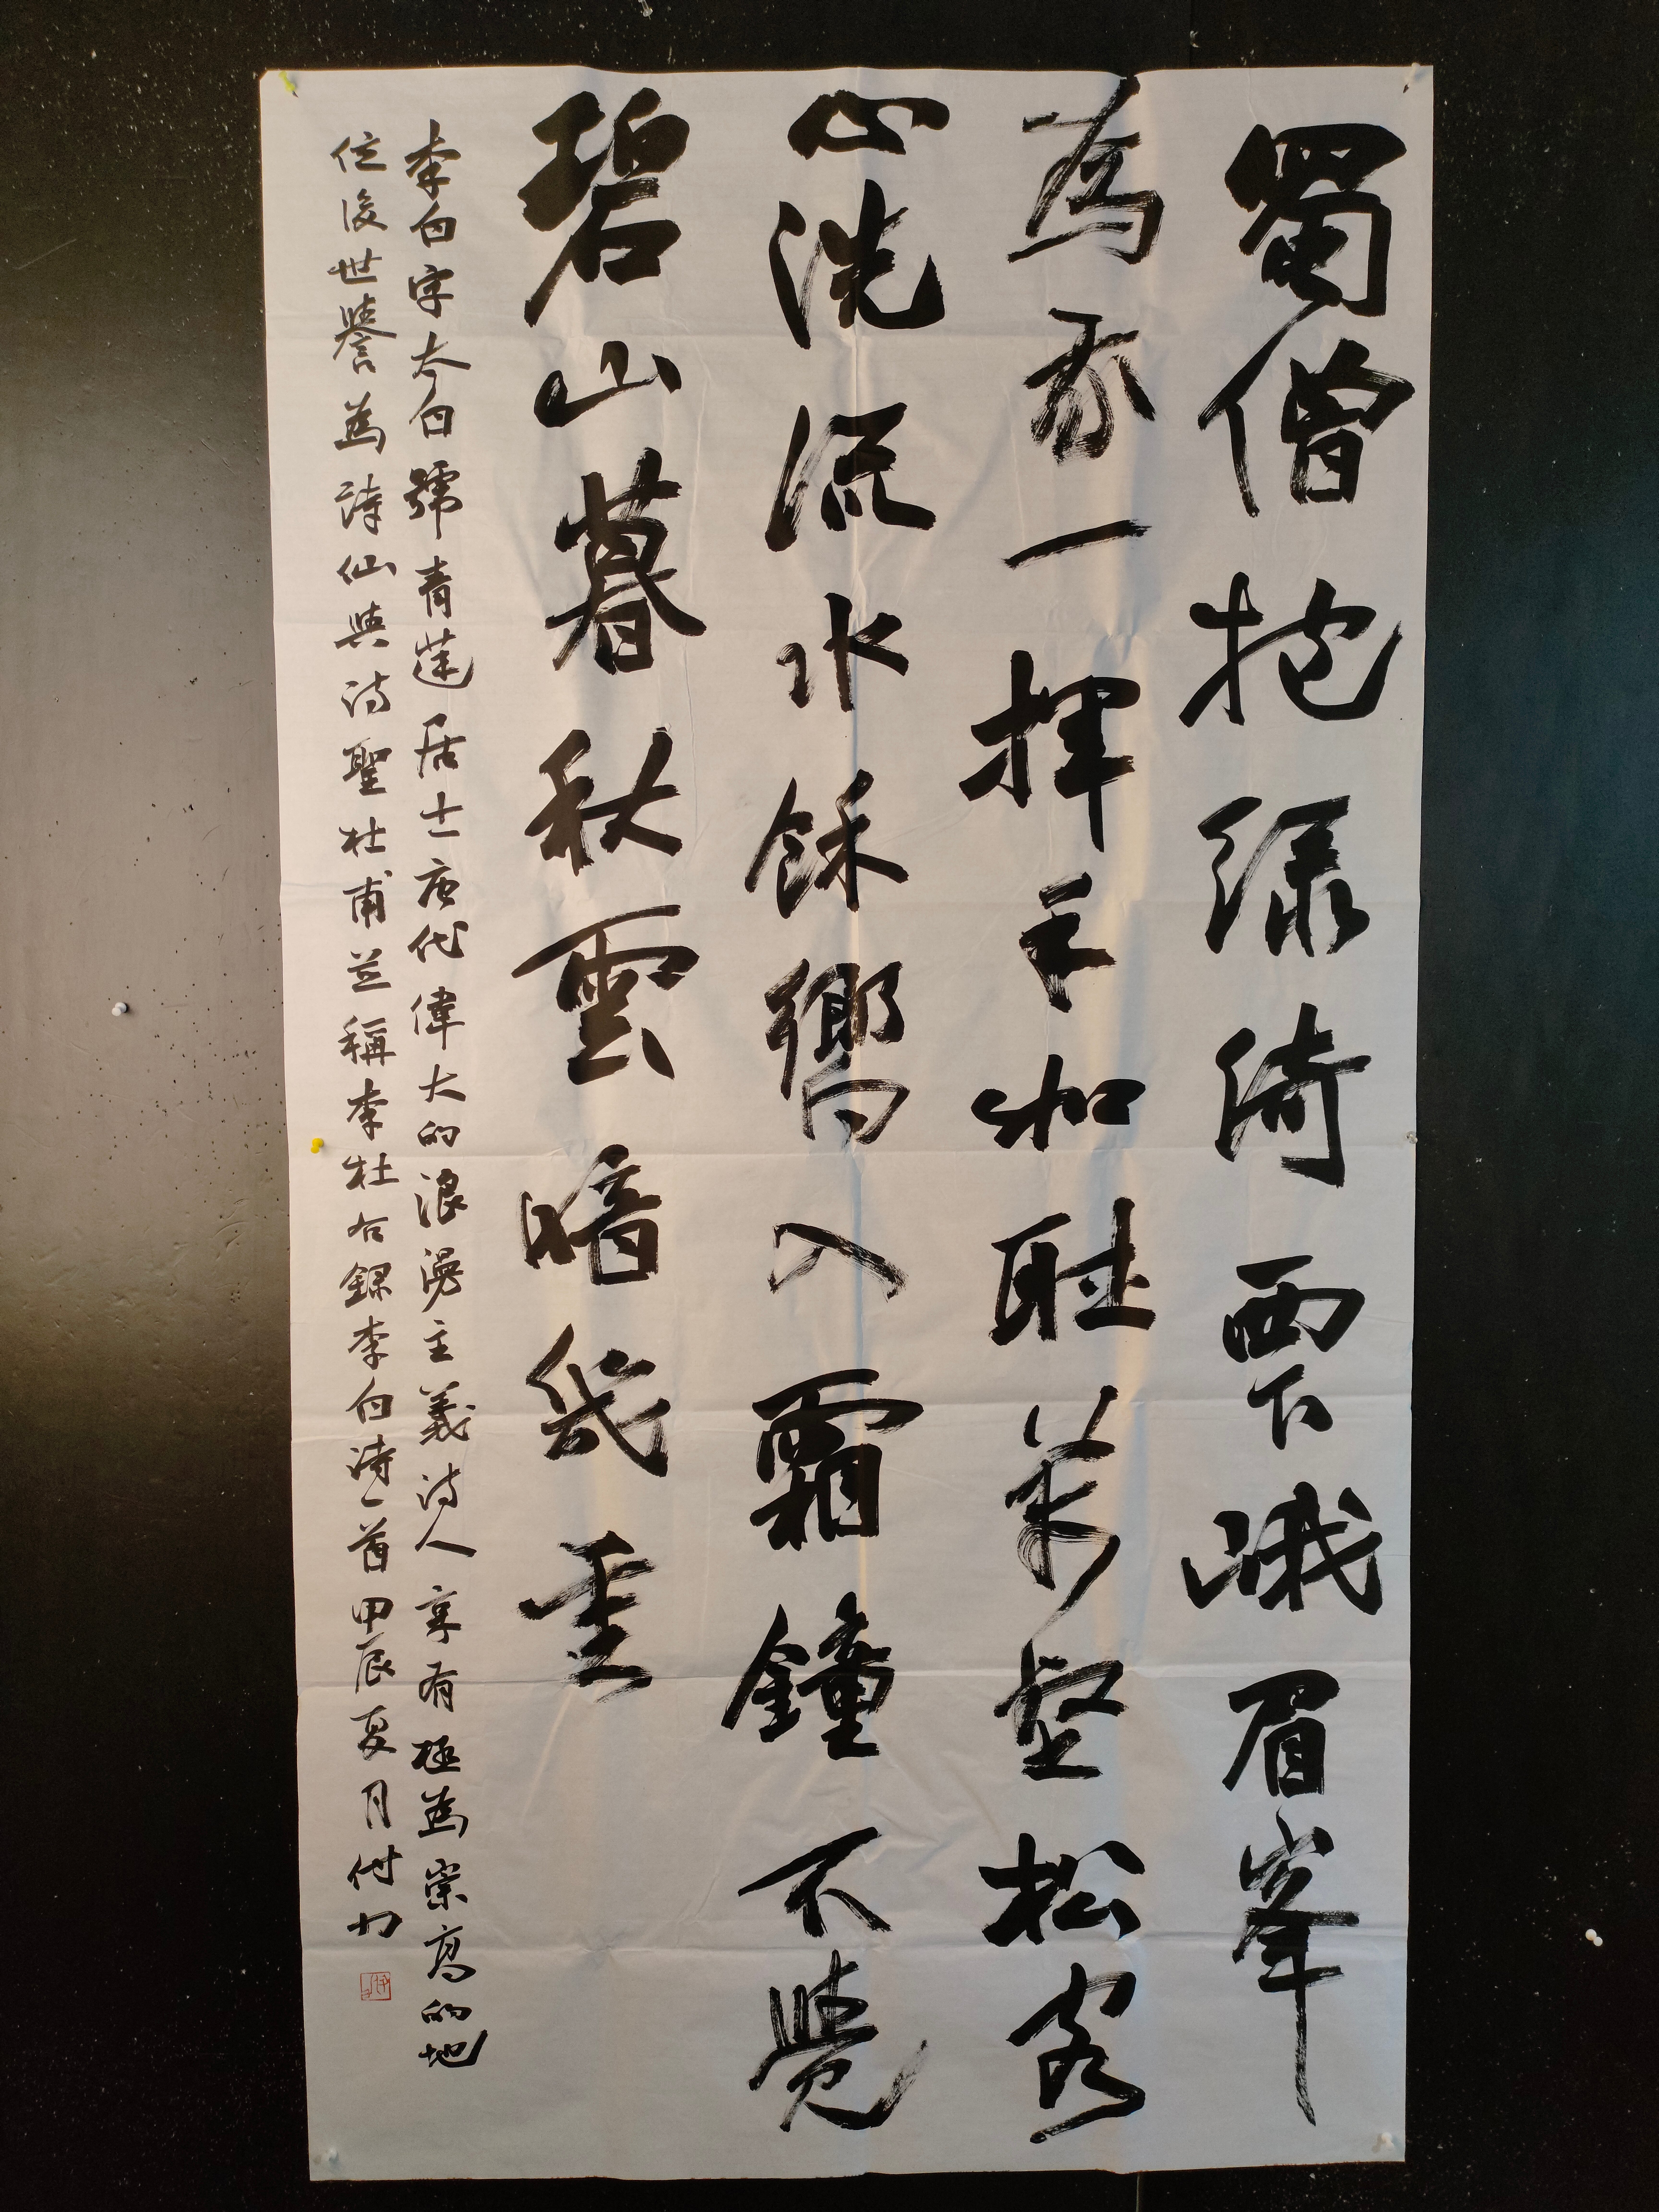 蜀僧抱綠綺西下峨眉峯
為我一揮手如聽萬壑松客
心洗流水餘響入霜鐘不覺
碧山暮秋雲暗幾重
李白字太白號青蓮居士唐代偉大的浪漫主義詩人享有極為崇高的地
位後世譽為詩仙與詩聖杜甫並稱李杜右錄李白詩一首甲辰夏月付力